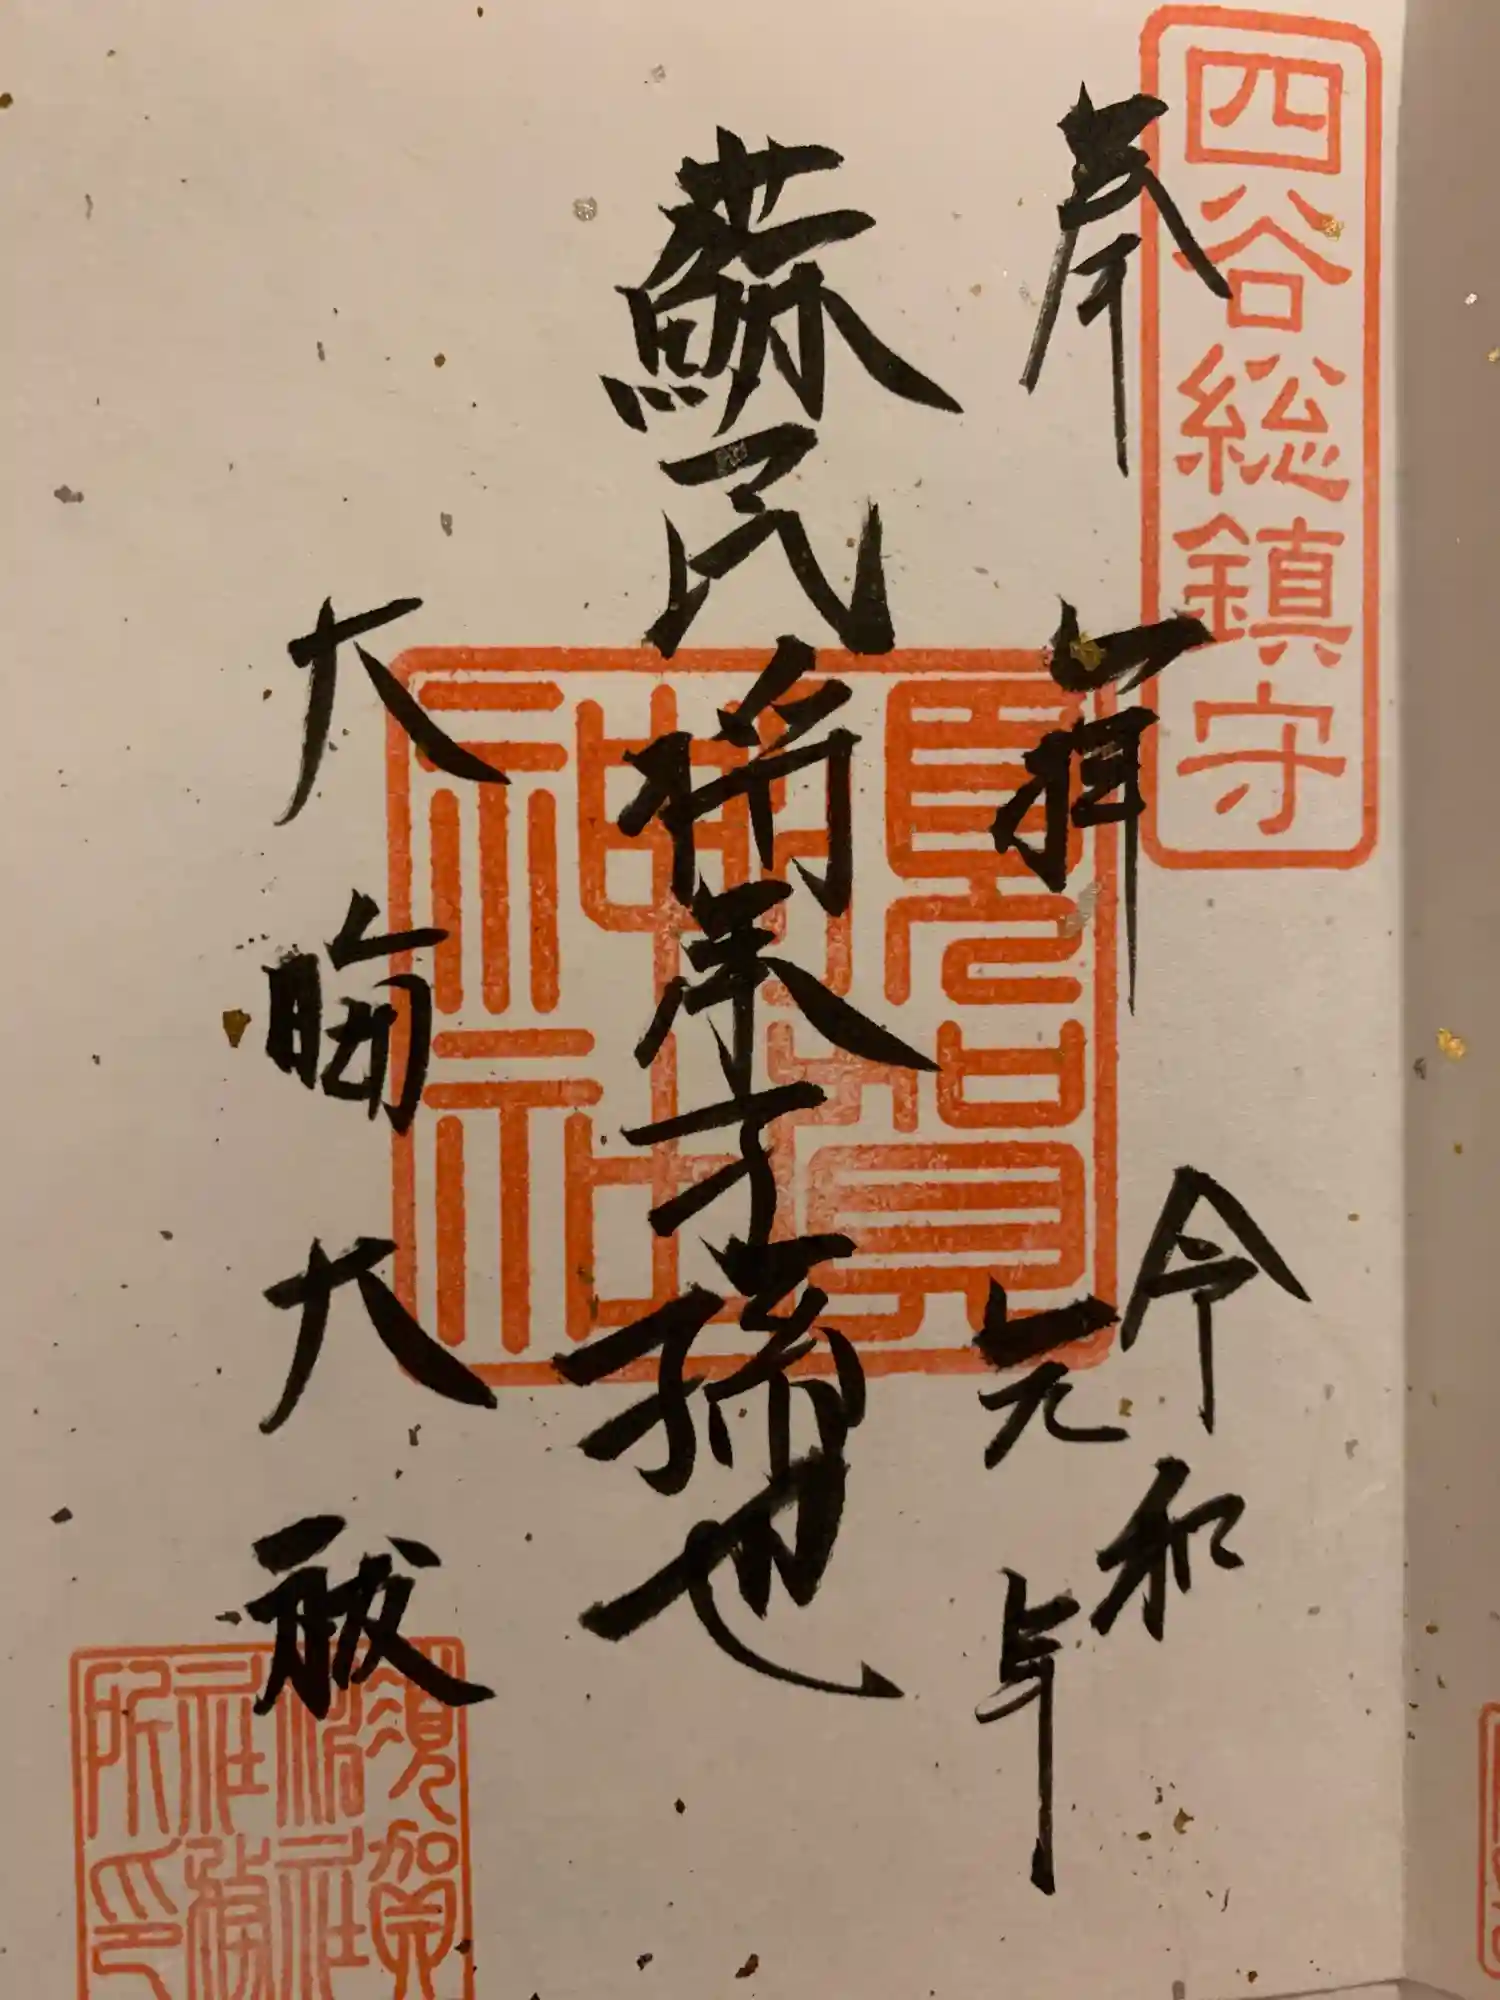 四谷総鎮守
奉拝
令和
元年
蘇民将来子孫也
須賀神社
大晦大祓
須賀
神社
社務
所印